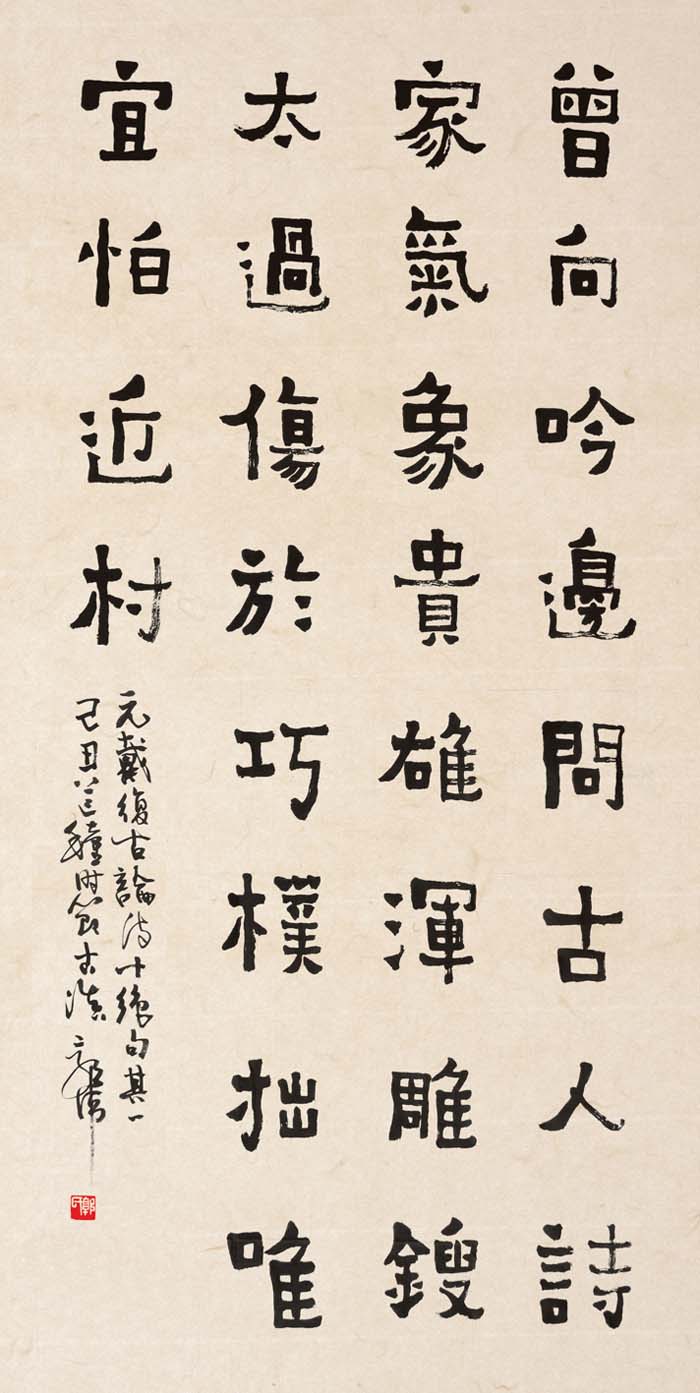 曾向吟邊問古人詩
家氣象貴雄渾雕鎪
太過傷於巧樸拙唯
宜怕近村
元戴復古論詩十絕句其一
己丑芒種時節古滇